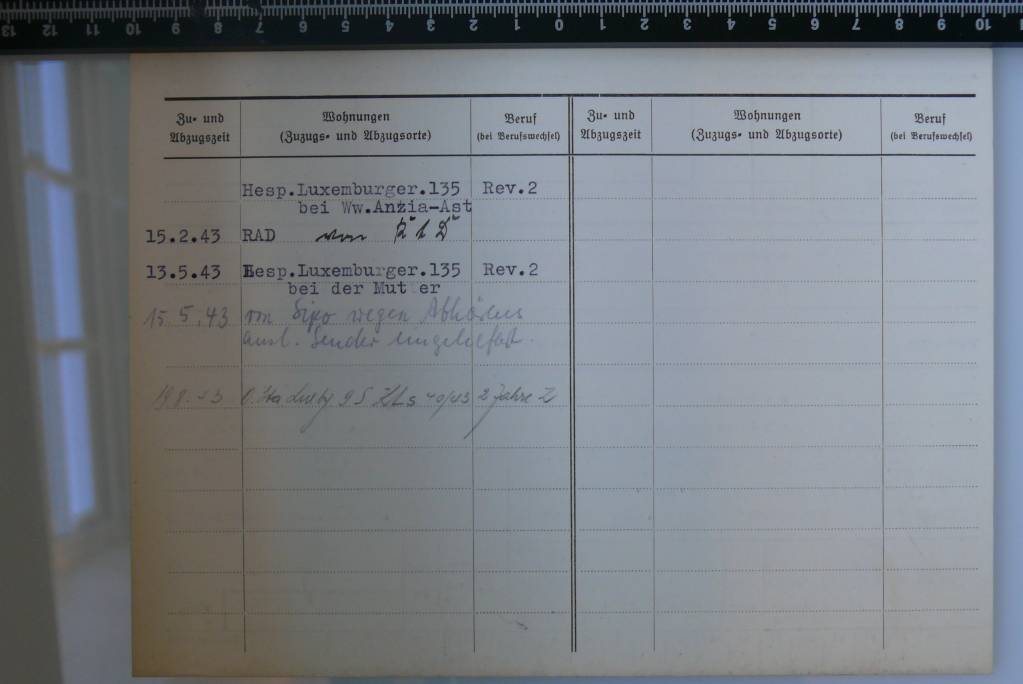 13 12 11 10 9 8 7 6 5 4 3 2 1 0 1 2 3 4 5 6 7 8 9 10
Zu- und Abzugszeit
Wohnungen (Zuzugs- und Abzugsorte)
Beruf (bei Berufswechsel)
Zu- und Abzugszeit
Wohnungen (Zuzugs- und Abzugsorte)
Beruf (bei Berufswechsel)
Hesp.Luxemburger.135 Rev.2
bei Ww.Anzia-Ast
15.2.43 RAD von
13.5.43 Hesp.Luxemburger.135 Rev.2
bei der Mutter
15.5.43 von Sipo wegen Abhörens
ausl. Sender eingeliefert.
19.8.43 9 S KLs 40/43 2 Jahre Z